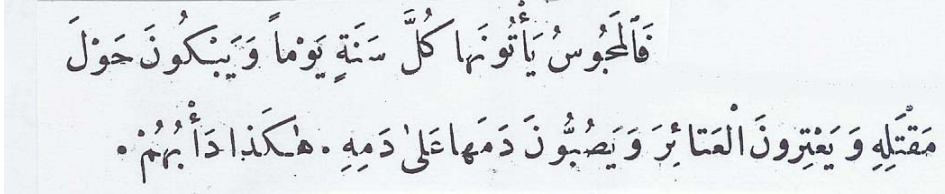 فَالْمَجُوسُ يَأْتُونَهَا كُلَّ سَنَةٍ يَوْماً وَيَبْكُونَ حَوْلَ
مَقْتَلِهِ وَيَعْتِرونَ الْعَتائِرَ وَيَصُبُّونَ دَمَها عَلىٰ دَمِهِ . هٰكَذا دَأْبُهُمْ .